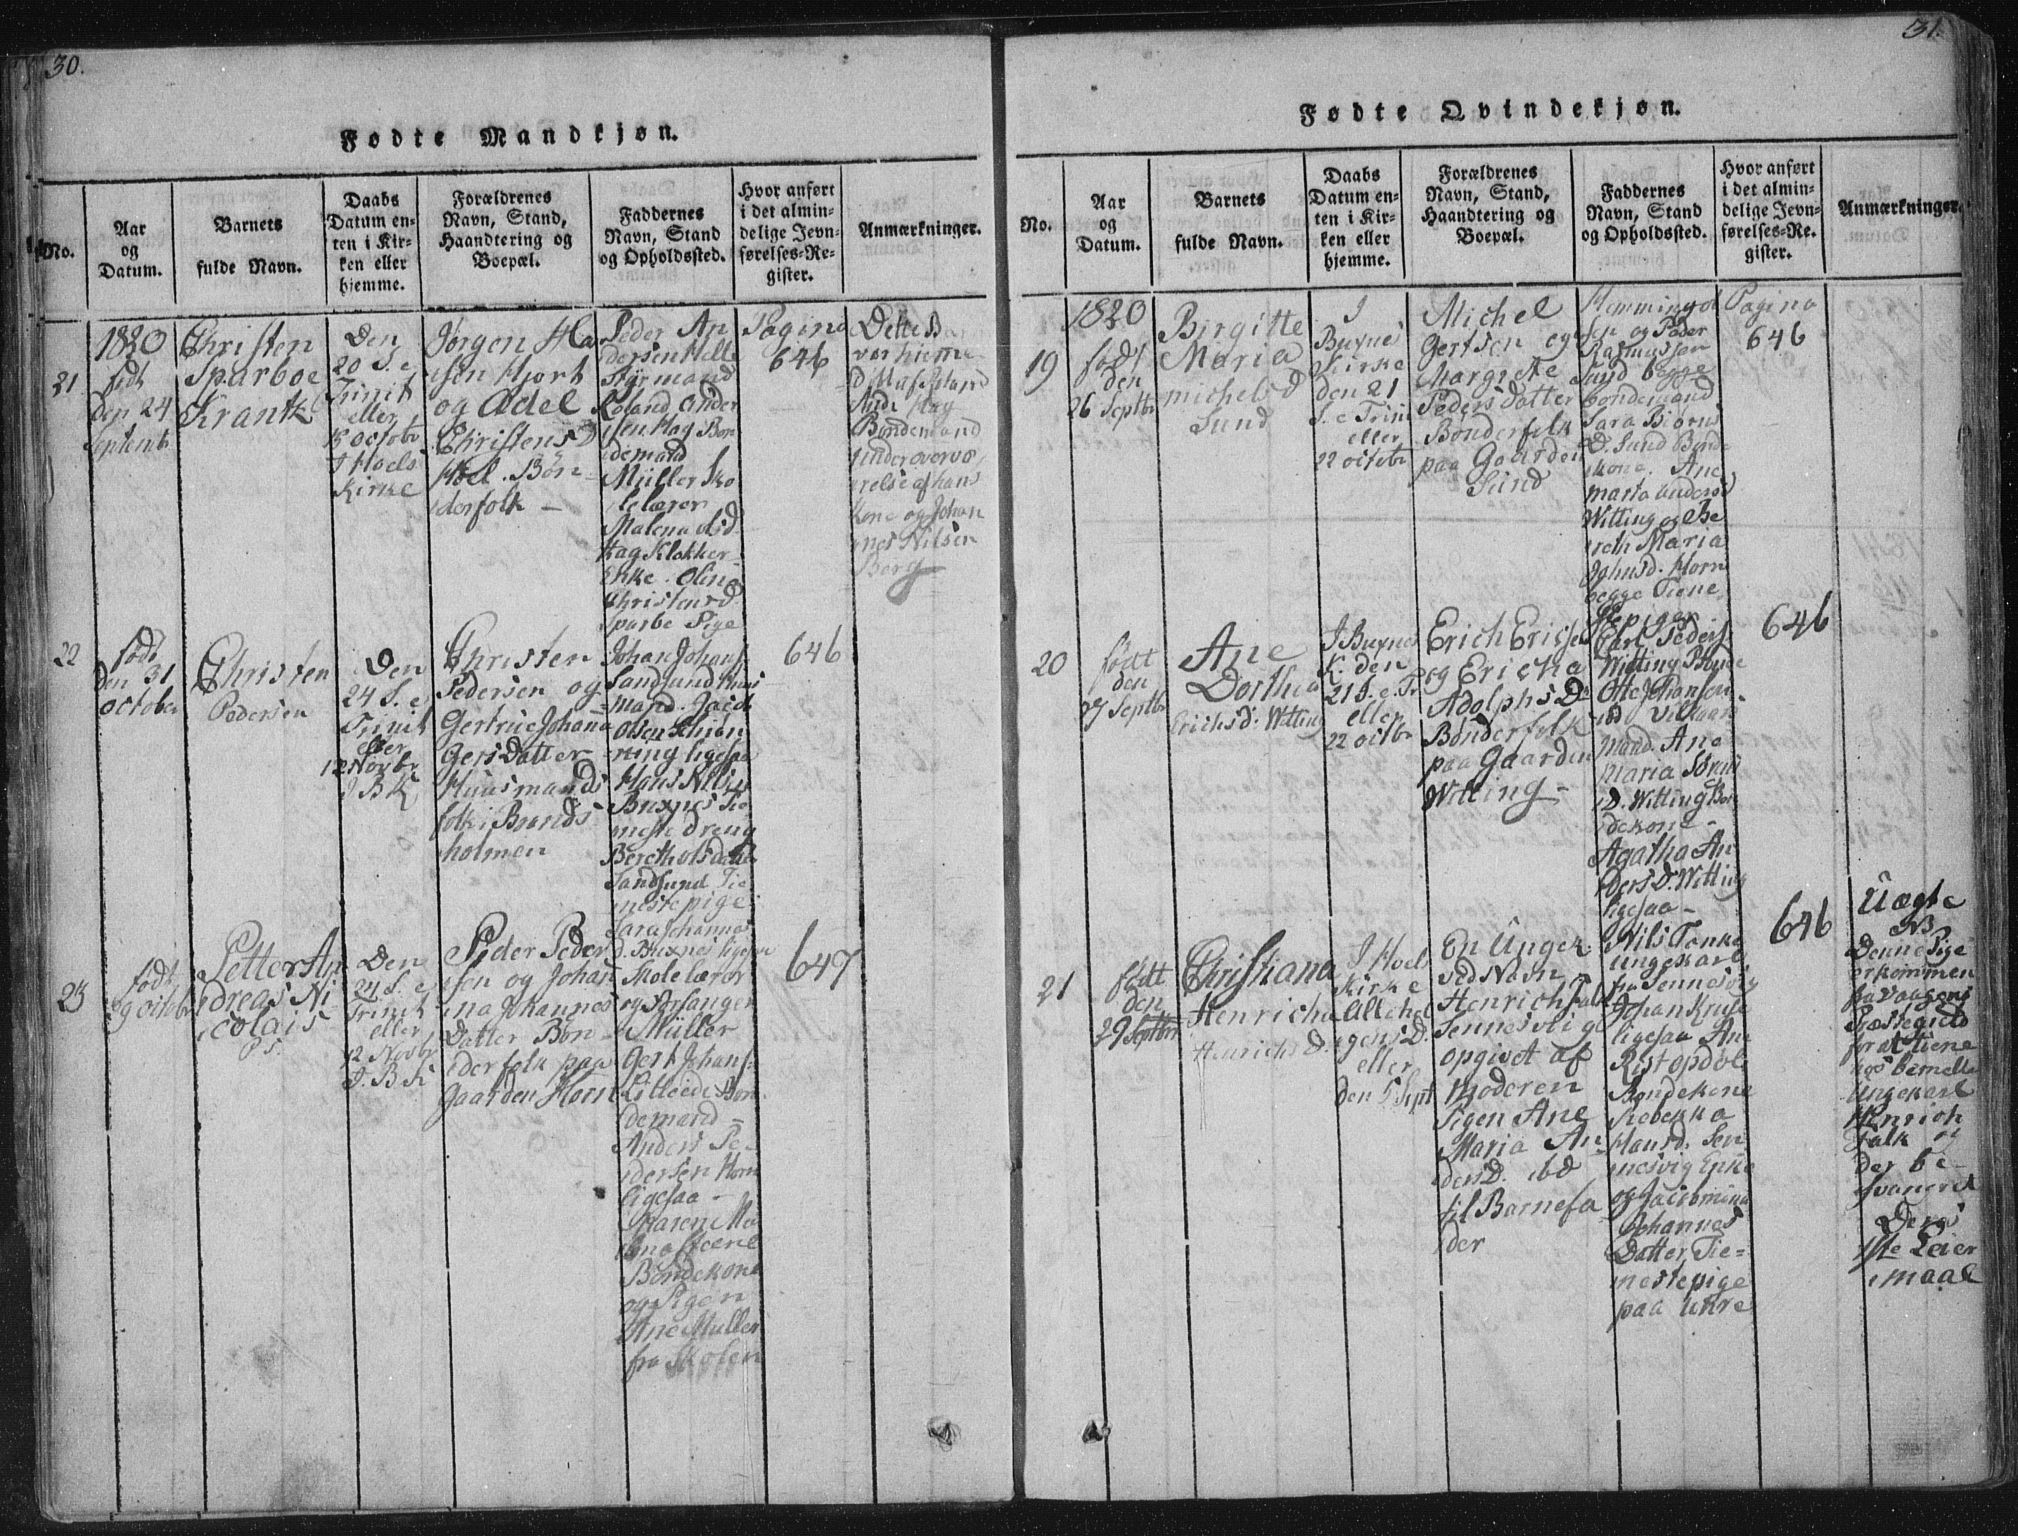 30.
Fødte Mandkjøn.
No.
Aar
og
Datum.
Barnets
fulde Navn.
Daabs
Datum en-
ten i Kir-
ken eller
hjemme.
Forældrenes
Navn, Stand,
Haandtering og
Boepæl.
Faddernes
Navn, Stand
og Opholdssted.
Hvor anført
i det almin-
delige Jevn-
førelses-Re-
gister.
Anmærkninger.
21
1820
født
den 24
Septemb.
Christen
Sparboe
Krantk
Den
20 S. e
Trinit
eller
I Hoels
Kirke
Jørgen Ha
isen Hjort
og Ædel
Christens D
Hoel. Bøn-
derfolk -
Peder An
dersen
Styrmand
Roland Ander
sen Hag Bon
demand
Müller Sko
lelærer
Malena
Hag Klokker
Enke. Olina
Christensd.
Sparbo Pige
Pagina
646
Dette B
var hieme
Bondemand
under overvæ
relse af hans
Kone og Johan
nes Nilsen
Borg
22
født
den 31
October
Christen
Pedersen
Den
24 S. e
Trinit
eller
12 Novbr
I B K
Christen
Pedersen og
Gertrue Johan
Gers Datter
Huusmands
folk i Brands
holmen
Johan Johans
Sandsund Huus
mand. Jacob
Olsen
ning ligesaa
Hans Nilsen
Buxnes Tie
neste dreng
Sandsund Tie
nestepige
Sara Johannes
d. Buxnes ligesaa
646
23
født
9 octobr
Petter An
dreas Ni
colais
Ps.
Den
24 S. e
Trinit
eller
12 Novbr
I. B. K
Peder Peder
sen og Johan
ina Johannes
Datter Bøn
derfolk paa
Gaarden Horn
Skolelærer
og Forsanger
Müller
Gert Johans
Litleeide Bon
demand
Anders Pe-
dersen Horn
ligesaa -
Maren Ma
Bondekone
og Pigen
Ane Muller
fra Skolen
647
31.
Fødte Qvindekjøn.
No.
Aar
og
Datum.
Barnets
fulde Navn.
Daabs
Datum en-
ten i Kir-
ken eller
hjemme.
Forældrenes
Navn, Stand,
Haandtering og
Boepæl.
Faddernes
Navn, Stand
og Opholdssted.
Hvor anført
i det almin-
delige Jevn-
førelses-Re-
gister.
Anmærkninger.
19
1820
født
den
26 Septbr
Birgitte
Maria
michels d
Sund
I
Buxnes
Kirke
den 21
S. e Trini
eller
22 octobr
Michel
Gertsen og
Margrete
Peders Datter
Bønderfolk
paa Gaarden
Sund
Hemming
sen og Peder
Rasmussen
Sund begge
bondemænd
Sara Biørns
D. Sund Bonde
kone. Ane
maria Anders
Witting og Be
reth Maria
Johnsd. Horn
begge Tiene
stepiger
Pagina
646
20
født
den
27 Septbr
Ane
Dorthea
Erichs d. Witting
I Buxnes
K. den
21 S. e Tr
eller
22 octbr
Erich Erichsen
og Ericka
Adolphs D
Bønderfolk
paa Gaarden
Witting -
Carl Peders
Witting
Otte
mand. Ane
maria Sørens
D. Witting Bon
dekone -
Agatha An
ders D. Witting
ligesaa -
646
21
født
den
29 Septbr
Christiana
Henricha
Henrichs D.
I Hoels
Kirke
Allehel
gens D.
eller
den 5 Sept
En Unger
ved Navn
Henrich Falk
Sennesvig
opgivet af
Moderen
Pigen Ane
Maria An
ders D. ibd
til Barnefa
der
Nils Tonke
ungekarl
fra Sennesvig
Johan Kruse
ligesaa Ane
Ristopdal
Bondekone
Rebekka
Hansd. Sen
nesvig Enke
og Jacobmina
Johannes
Datter Tie-
nestepige
paa Ukre
646
Uægte
NB
Denne Pige
erkommen
fra Vaagens
Præstegield
for at tiene
hos bemelte
Ungekarl
Henrich
Falk og
der be-
svangret
Deres
1ste Leier
maal